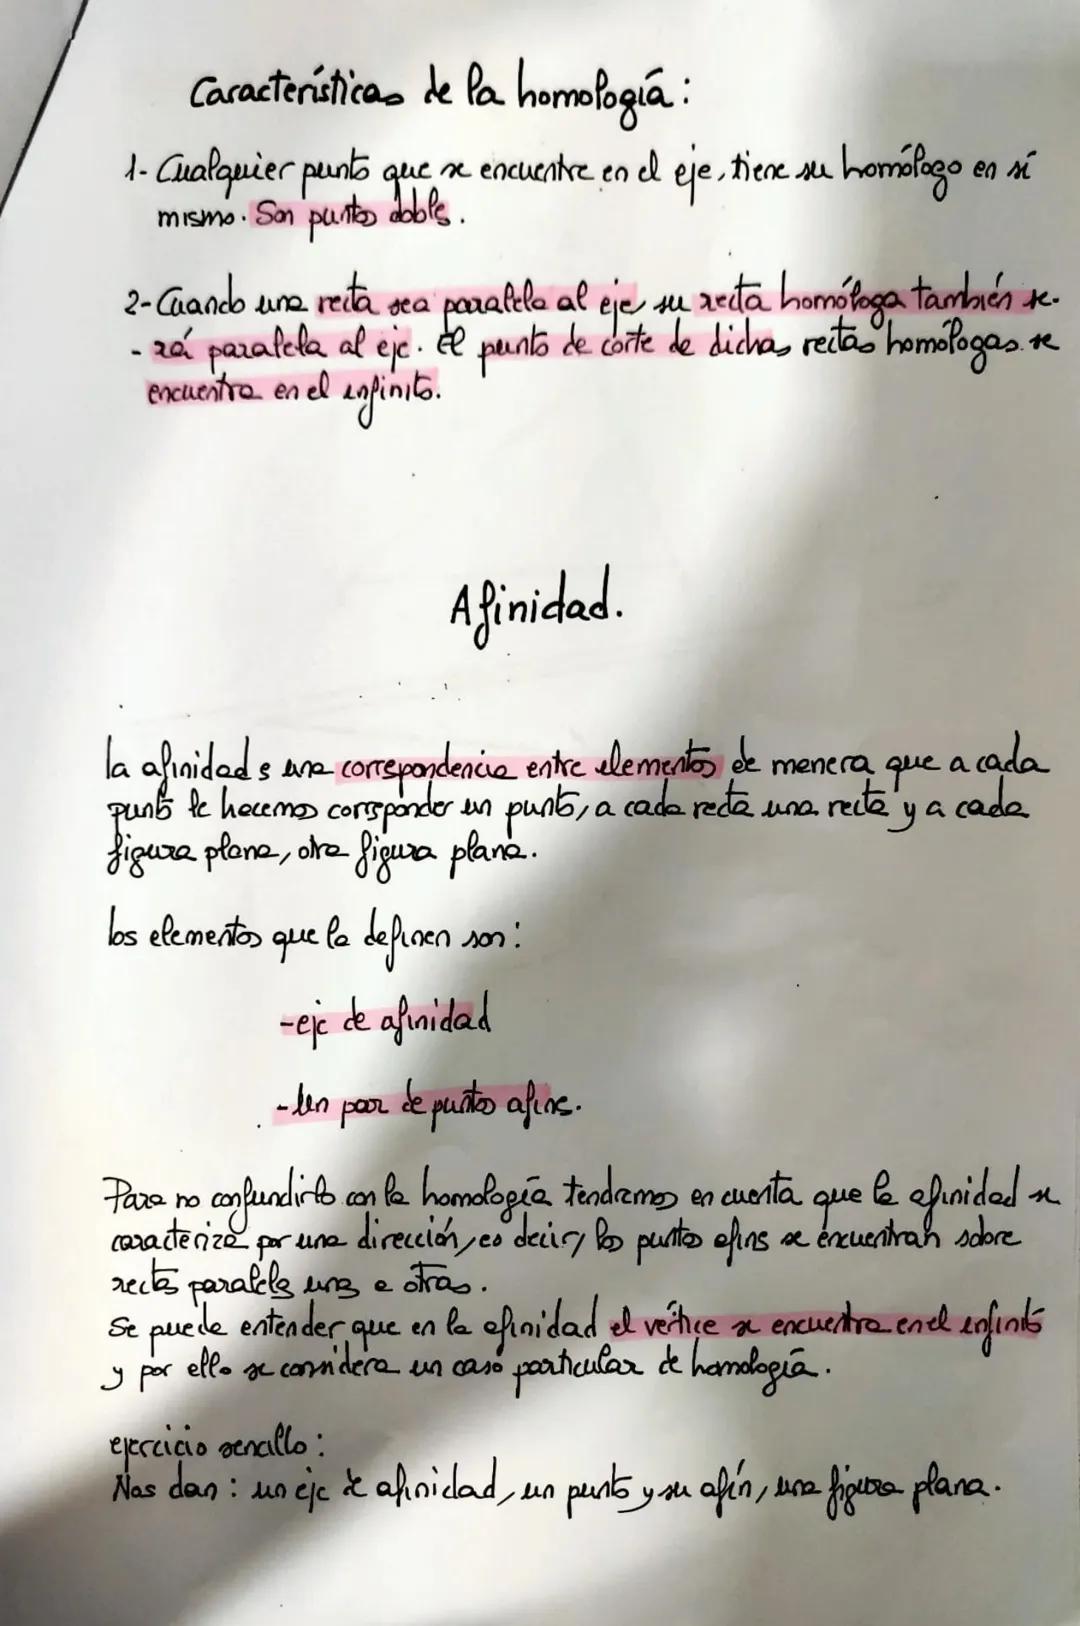 Características de la homología:
1- Cualquier punto que se encuentre en el eje, tiene su homólogo en sí
mismo. Son puntos dobles.
2- Cuando una recta sea paralela al eje su recta homóloga también se-
- rá paralela al eje. El punto de corte de dichas rectas homólogas se
encuentra en el infinito.
Afinidad.
la afinidad es una correspondencia entre elementos de manera que a cada
punto le hacemos corresponder un punto, a cada recta una recta y a cada
figura plana, otra figura plana.
los elementos que la definen son:
-eje de afinidad
-Un par de puntos afines.
Para no confundirlo con la homología tendremos en cuenta que la afinidad se
caracteriza por una dirección, es decir, los puntos afines se encuentran sobre
rectas paralelas unas a otras.
Se puede entender que en la afinidad el vértice se encuentra en el infinito
y por ello se considera un caso particular de homología.
ejercicio sencillo:
Nos dan: un eje de afinidad, un punto y su afín, una figura plana.